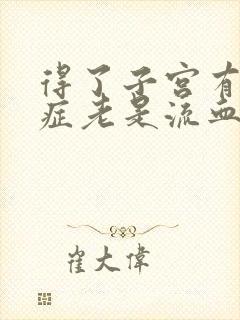 得了子宫有
症老是流血
崔大偉